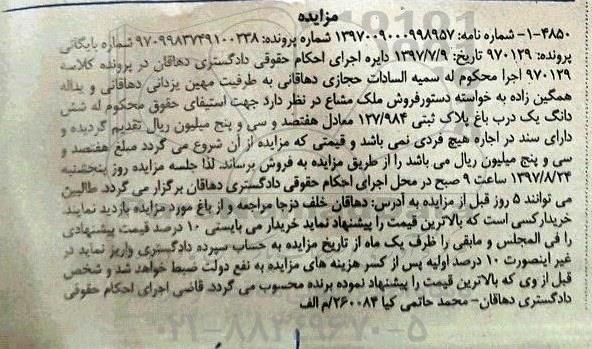 مزایده
۱-۴۸۵۰- شماره نامه: ۱۳۹۷۰۰۹۰۰۰۹۹۸۹۵۷ شماره پرونده: ۹۷۰۹۹۸۳۷۴۹۱۰۰۲۳۸ شماره بایگانی
پرونده: ۹۷۰۱۲۹ تاریخ: ۱۳۹۷/۷/۹ دایره اجرای احکام حقوقی دادگستری دهاقان در پرونده کلاسه
۹۷۰۱۲۹ اجرا محکوم له سمیه السادات حجازی دهاقانی به طرفیت مهین یزدانی دهاقانی و یداله
همگین زاده به خواسته دستورفروش ملک مشاع در نظر دارد جهت استیفای حقوق محکوم له شش
دانگ یک درب باغ پلاک ثبتی ۱۲۷/۹۸۴ معادل هفتصد و سی و پنج میلیون ریال تقدیم گردیده و
دارای سند در اجاره هیچ فردی نمی باشد و قیمتی که مزایده از آن شروع می گردد مبلغ هفتصد و
سی و پنج میلیون ریال می باشد را از طریق مزایده به فروش برساند. لذا جلسه مزایده روز پنجشنبه
۱۳۹۷/۸/۲۴ ساعت ۹ صبح در محل اجرای احکام حقوقی دادگستری دهاقان برگزار می گردد. طالبین
می توانند ۵ روز قبل از مزایده به آدرس: دهاقان خلف دزجا مراجعه و از باغ مورد مزایده بازدید نمایند.
خریدارکسی است که بالاترین قیمت را پیشنهاد نماید خریدار می بایستی ۱۰ درصد قیمت پیشنهادی
را فی المجلس و مابقی را ظرف یک ماه از تاریخ مزایده به حساب سپرده دادگستری واریز نماید در
غیر اینصورت ۱۰ درصد اولیه پس از کسر هزینه های مزایده به نفع دولت ضبط خواهد شد و شخص
قبل از وی که بالاترین قیمت را پیشنهاد نموده برنده محسوب می گردد. قاضی اجرای احکام حقوقی
دادگستری دهاقان- محمد حاتمی کیا ۲۶۰۰۸۴/م الف
۰۲۱-۸۸۳۴۹۶۷۰-۵